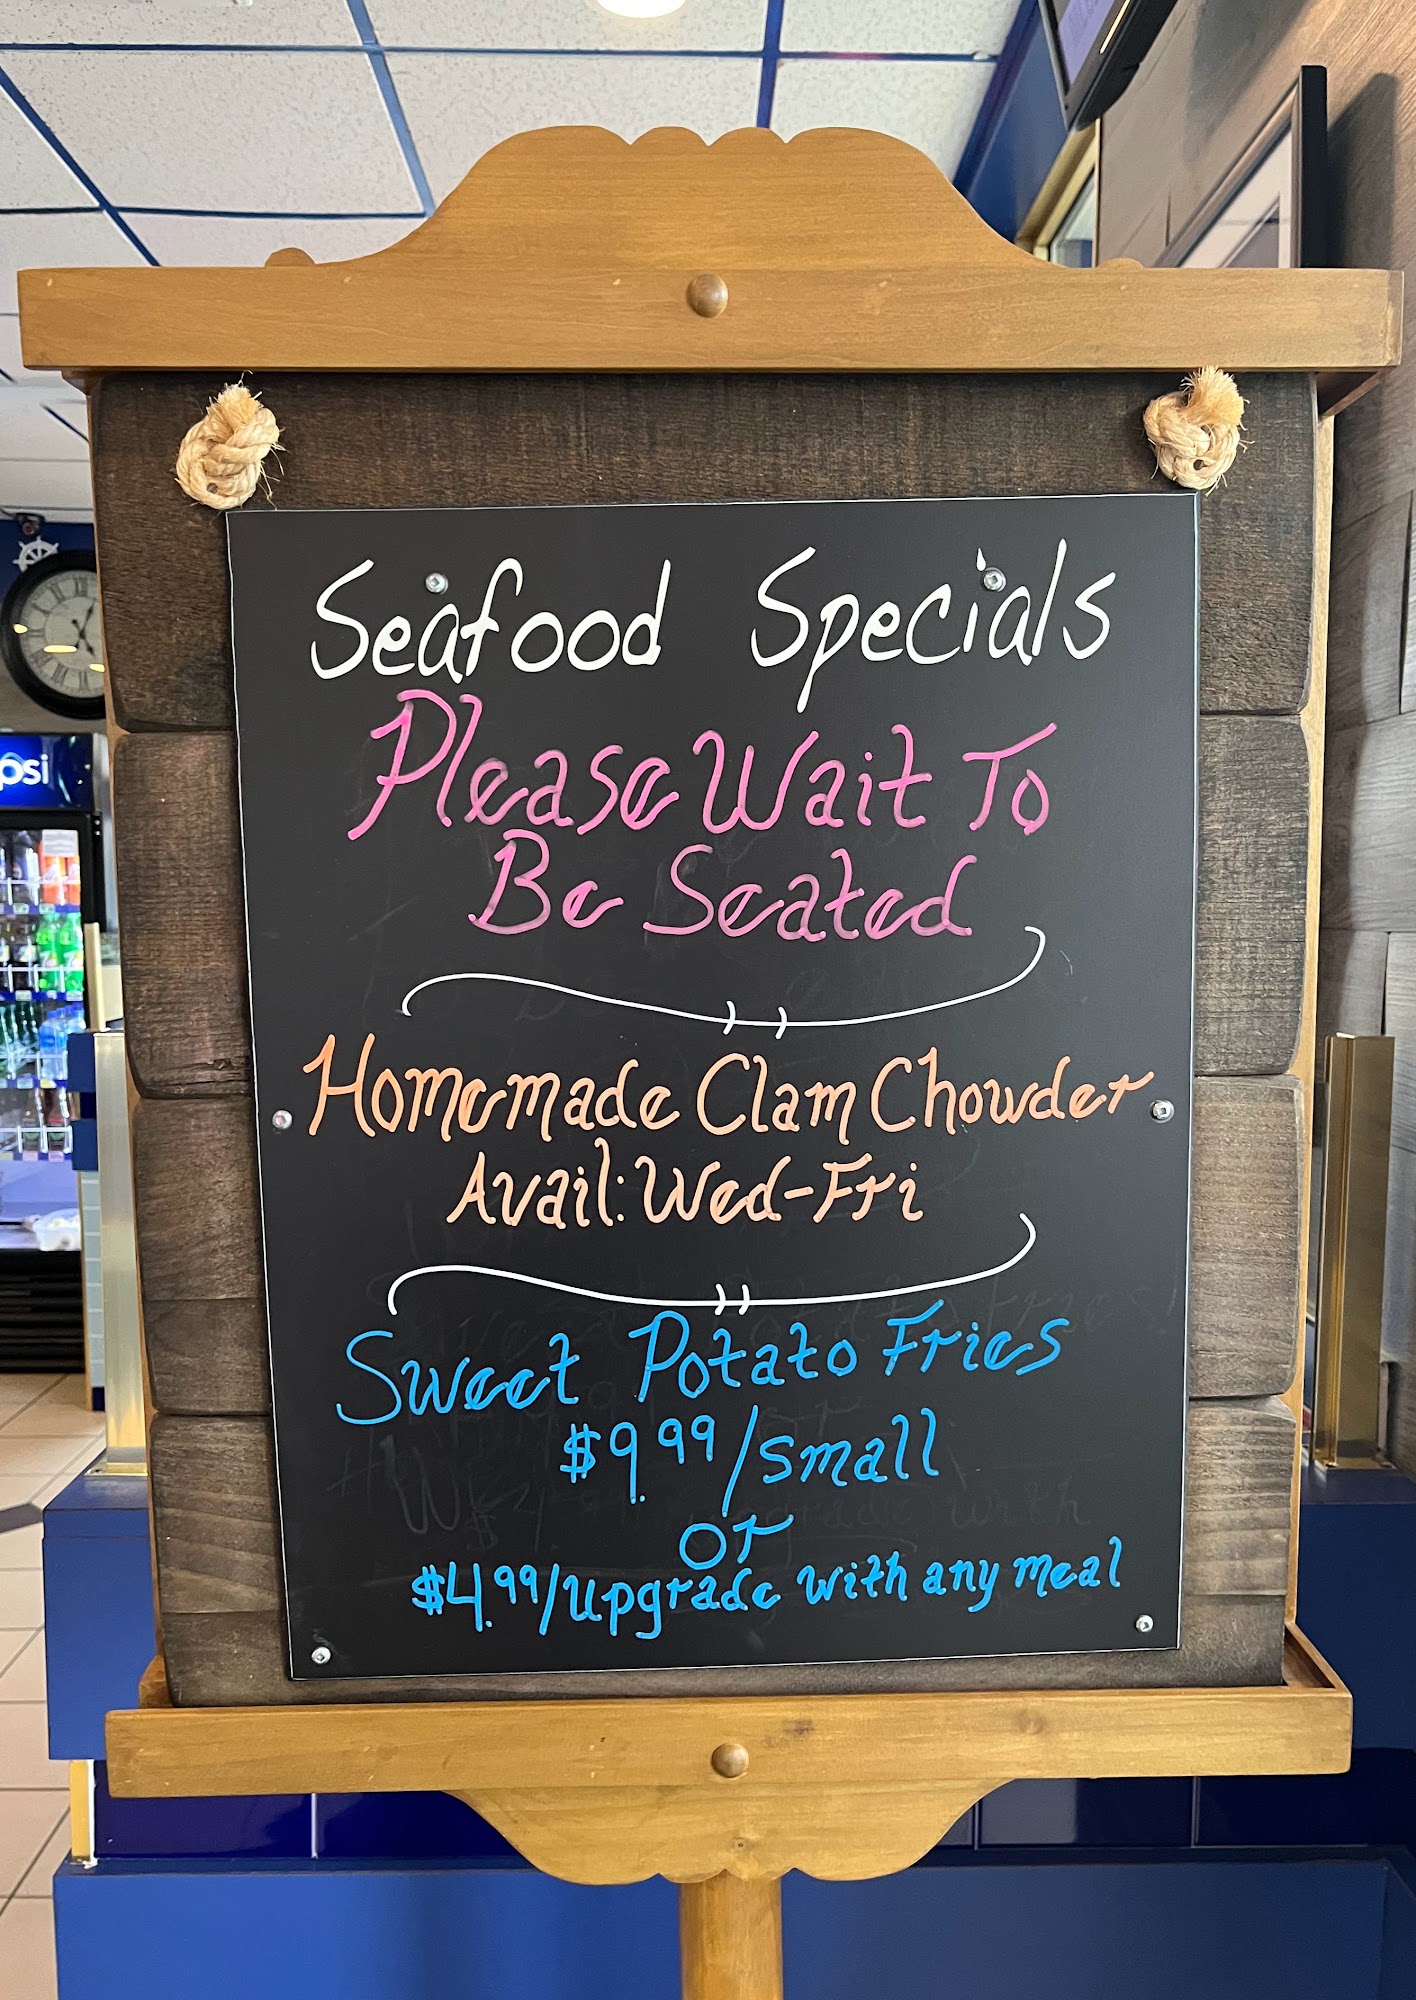 Seafood Specials
Please Wait To
Be Seated
Homemade Clam Chowder
Avail: Wed-Fri
Sweet Potato Fries
$9.99/small
or
$4.99/upgrade with any meal
psi